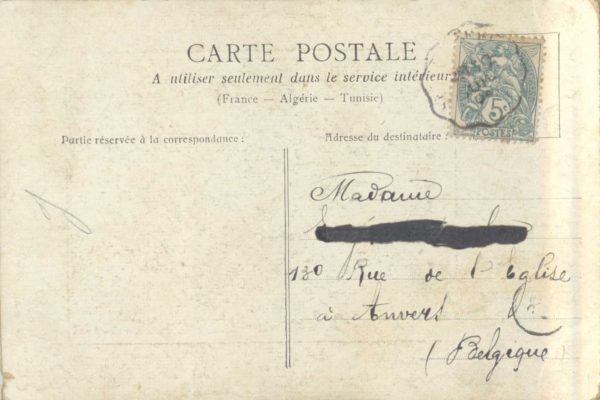 CARTE POSTALE
A utiliser seulement dans le service intérieur
(France — Algérie — Tunisie)
5c
POSTES
Partie réservée à la correspondance :
Adresse du destinataire :
Madame
130 Rue de l'Eglise
à Anvers
(Belgique)